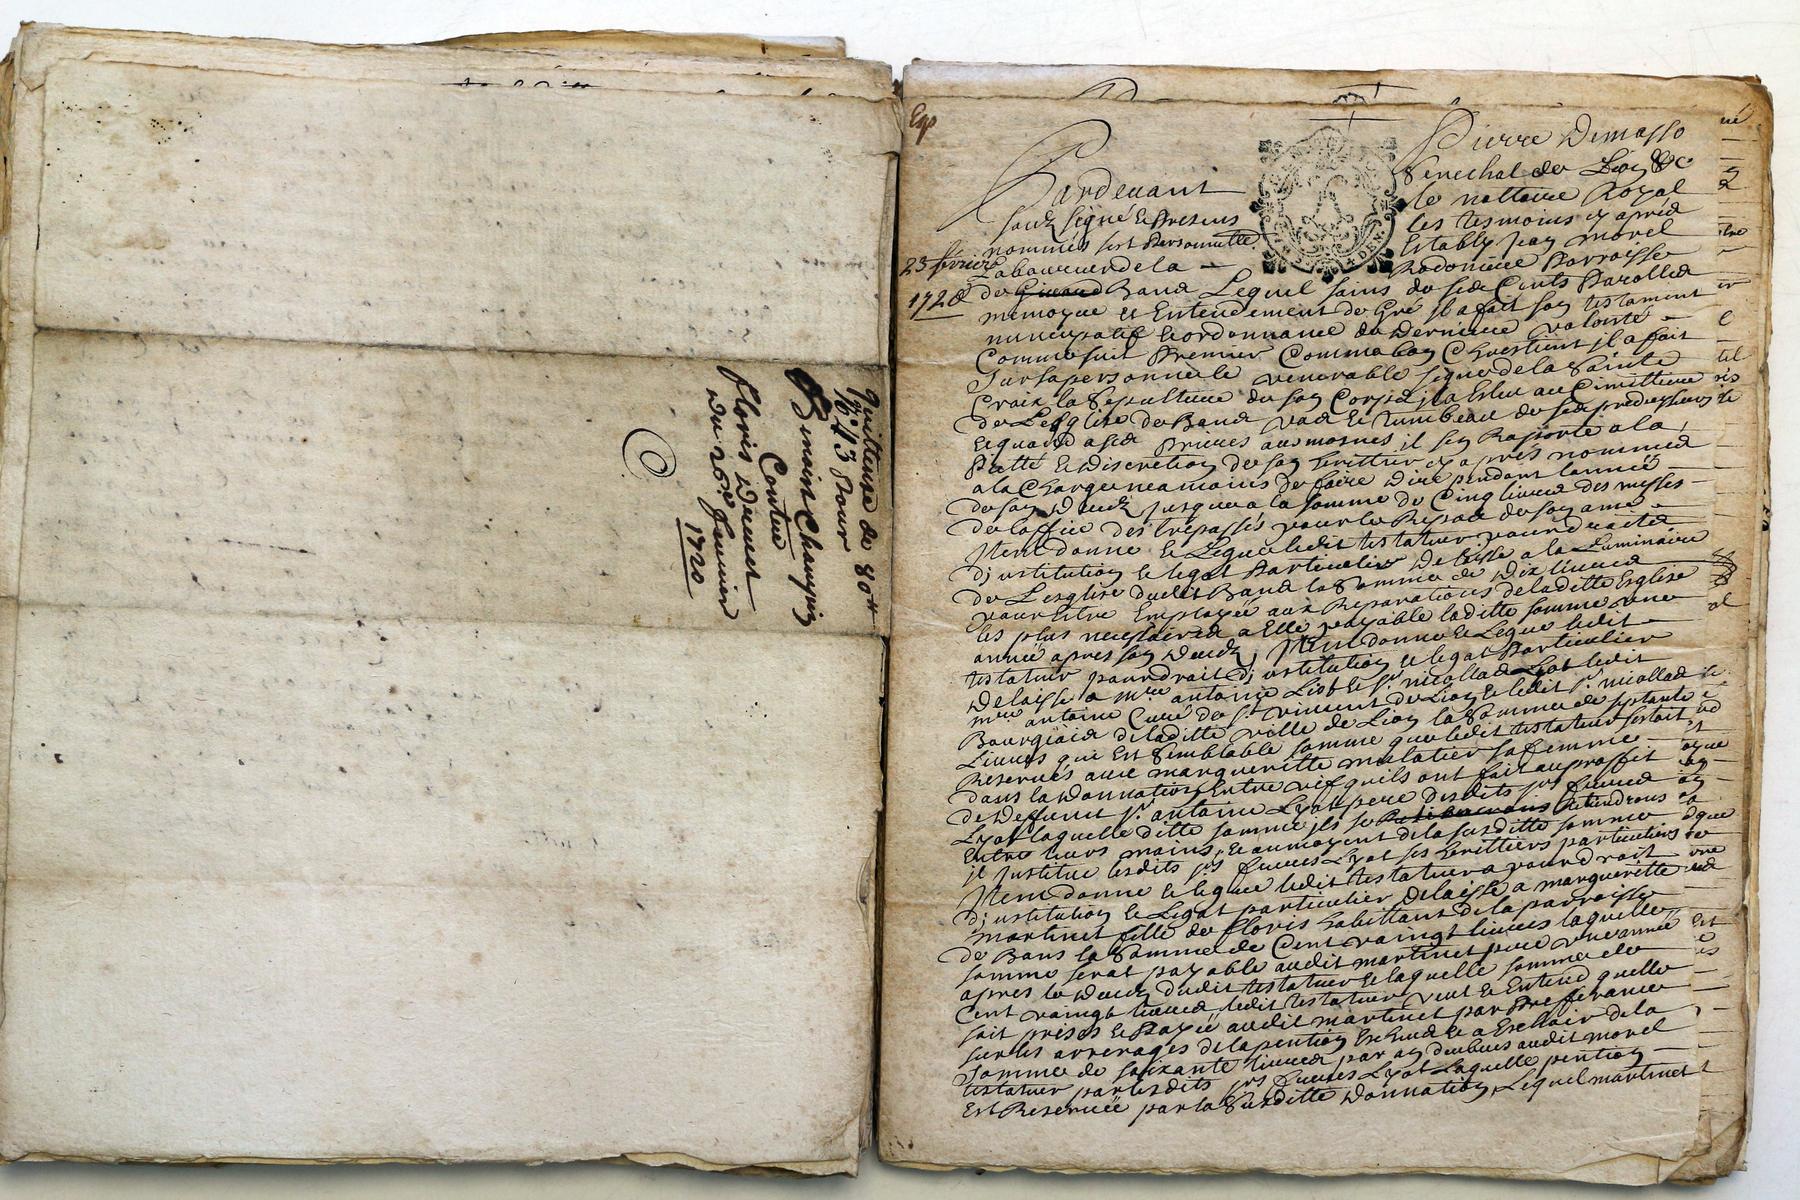 quittance de 80#
pour
Benoist Champin
Contre
floris
du
1720
Exp
23 février
1728
Pierre Demasso
Pardevant
Senechal de Lion &c
le nottaire Royal
soub signé et presens
les tesmoins cy apres
nommés fut personnelle
Estably jean morel
Laboureur de la
parroisse
de Bans Lequel sains de ses Cents parolles
memoyre et Entendement de Gré jl a fait son testament
nuncupatif et ordonnance de derniere volonté
Comme suit premier Comme bon Chrestient jl a fait
sur sa personne le venerable signe de la Sainte
Croix la Sepulture de son Corps jl a Esleu au Cimittiere
de Lesglise de Bans vas et tumbeau de ses predecesseurs
Et quand a ses prieres aumosnes il s'en raporte a la
pietté et discretion de son heritier cy apres nommé
a la Charge neamoins de faire dire pendant lannée
de son decedz jusques a la somme de Cinq livres des messes
de loffice des trépassés pour le Repos de son ame
jtem donne et Legue ledit testateur pour droit
d'institution et legat particulier delaisse a la Luminaire
de Lesglise dudit Bans la Somme de dix livres
pour Estre Employée aux Reparations de laditte Esglise
les plus necessaires a Elle payable laditte somme une
année apres son decedz jtem donne et Legue ledit
testateur pour droit d'institution et legat particulier
delaisse a mre antoine Liot et sr nicollas Lyot ledit
mre antoine Curé de st vincent de Lion et ledit sr nicollas
Bourgeois de laditte ville de Lion la Somme de septante
Livres qui Est Semblable somme que ledit testateur
Reservés avec margueritte mulatier sa femme
dans la donnation Entre vifs quils ont fait au proffit
de deffunt sr antoine Lyot pere desdits srs freres
Lyot laquelle ditte somme jls se Retiendrons
Entre leurs mains, et au moyent de la susditte somme
jl jnstitue lesdits srs freres Lyot ses heritiers particuliers
jtem donne et legue ledit testateur pour droit
d'institution et Legat particulier delaisse a margueritte
martinet fille de floris habittant de la parroisse
de Bans la Somme de Cent vaingt livres laquelle
somme serat payable audit martinet pere une année
apres le decedz dudit testateur et laquelle somme de
Cent vaingt livres ledit testateur veut et Entend quelle
soit prise et payée audit martinet par preferance
sur les arrerages de la pention
somme de soixante livres par an deubues audit morel
testateur par lesdits srs freres Lyot laquelle pention
Est Reservée par la Susditte donnation, Lequel martinet